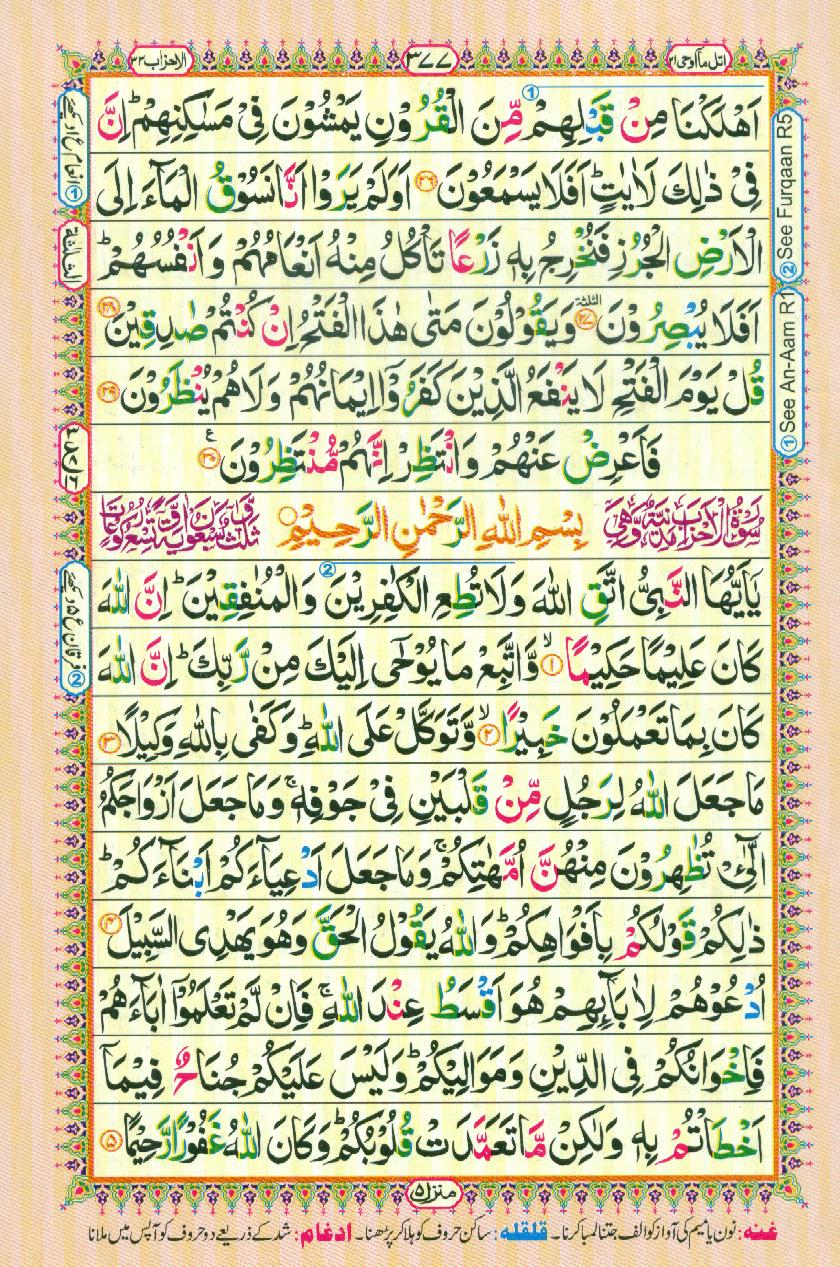 اتل ما اوحی ۲۱
۳۷۷
الاحزاب ۳۳
اَهۡلَكۡنَا مِنۡ قَبۡلِهِمۡ مِّنَ الۡقُرُوۡنِ يَمۡشُوۡنَ فِىۡ مَسٰكِنِهِمۡ ؕ اِنَّ
فِىۡ ذٰلِكَ لَاٰيٰتٍ ؕ اَفَلَا يَسۡمَعُوۡنَ ﴿۲۶﴾ اَوَلَمۡ يَرَوۡا اَنَّا نَسُوۡقُ الۡمَآءَ اِلَى
الۡاَرۡضِ الۡجُرُزِ فَنُخۡرِجُ بِهٖ زَرۡعًا تَاۡكُلُ مِنۡهُ اَنۡعَامُهُمۡ وَ اَنۡفُسُهُمۡ ؕ
اَفَلَا يُبۡصِرُوۡنَ ﴿۲۷﴾ الثلثة وَيَقُوۡلُوۡنَ مَتٰى هٰذَا الۡفَتۡحُ اِنۡ كُنۡتُمۡ صٰدِقِيۡنَ ﴿۲۸﴾
قُلۡ يَوۡمَ الۡفَتۡحِ لَا يَنۡفَعُ الَّذِيۡنَ كَفَرُوۡۤا اِيۡمَانُهُمۡ وَلَا هُمۡ يُنۡظَرُوۡنَ ﴿۲۹﴾
فَاَعۡرِضۡ عَنۡهُمۡ وَانْتَظِرۡ اِنَّهُمۡ مُّنۡتَظِرُوۡنَ ﴿۳۰﴾ ع
سُوۡرَةُ الۡاَحۡزَابِ مَدَنِيَّةٌ وَّهِىَ بِسۡمِ اللّٰهِ الرَّحۡمٰنِ الرَّحِيۡمِ ثَلٰثٌ وَّسَبۡعُوۡنَ اٰيَةً وَّتِسۡعُ رُكُوۡعَاتٍ
يٰۤاَيُّهَا النَّبِىُّ اتَّقِ اللّٰهَ وَلَا تُطِعِ الۡكٰفِرِيۡنَ وَالۡمُنٰفِقِيۡنَ ؕ اِنَّ اللّٰهَ
كَانَ عَلِيۡمًا حَكِيۡمًا ۙ﴿۱﴾ وَّاتَّبِعۡ مَا يُوۡحٰٓى اِلَيۡكَ مِنۡ رَّبِّكَ ؕ اِنَّ اللّٰهَ
كَانَ بِمَا تَعۡمَلُوۡنَ خَبِيۡرًا ۙ﴿۲﴾ وَّتَوَكَّلۡ عَلَى اللّٰهِ ؕ وَكَفٰى بِاللّٰهِ وَكِيۡلًا ﴿۳﴾
مَا جَعَلَ اللّٰهُ لِرَجُلٍ مِّنۡ قَلۡبَيۡنِ فِىۡ جَوۡفِهٖ ۚ وَمَا جَعَلَ اَزۡوَاجَكُمُ
الّٰٓـىِٔۡ تُظٰهِرُوۡنَ مِنۡهُنَّ اُمَّهٰتِكُمۡ ۚ وَمَا جَعَلَ اَدۡعِيَآءَكُمۡ اَبۡنَآءَكُمۡ ؕ
ذٰلِكُمۡ قَوۡلُكُمۡ بِاَفۡوَاهِكُمۡ ؕ وَاللّٰهُ يَقُوۡلُ الۡحَقَّ وَهُوَ يَهۡدِى السَّبِيۡلَ ﴿۴﴾
اُدۡعُوۡهُمۡ لِاٰبَآئِهِمۡ هُوَ اَقۡسَطُ عِنۡدَ اللّٰهِ ۚ فَاِنۡ لَّمۡ تَعۡلَمُوۡۤا اٰبَآءَهُمۡ
فَاِخۡوَانُكُمۡ فِى الدِّيۡنِ وَمَوَالِيۡكُمۡ ؕ وَلَيۡسَ عَلَيۡكُمۡ جُنَاحٌ فِيۡمَاۤ
اَخۡطَاۡتُمۡ بِهٖ وَلٰكِنۡ مَّا تَعَمَّدَتۡ قُلُوۡبُكُمۡ ؕ وَكَانَ اللّٰهُ غَفُوۡرًا رَّحِيۡمًا ﴿۵﴾
① See An-Aam R1 ② See Furqaan R5
① انعام ع ۱ دیکھئے
الثلثة
② فرقان ع ۵ دیکھئے
منزل ۵
غنه: نون یا میم کی آواز کو الف جتنا لمبا کرنا۔ قلقله: ساکن حروف کو ہلا کر پڑھنا۔ ادغام: شد کے ذریعے دو حروف کو آپس میں ملانا